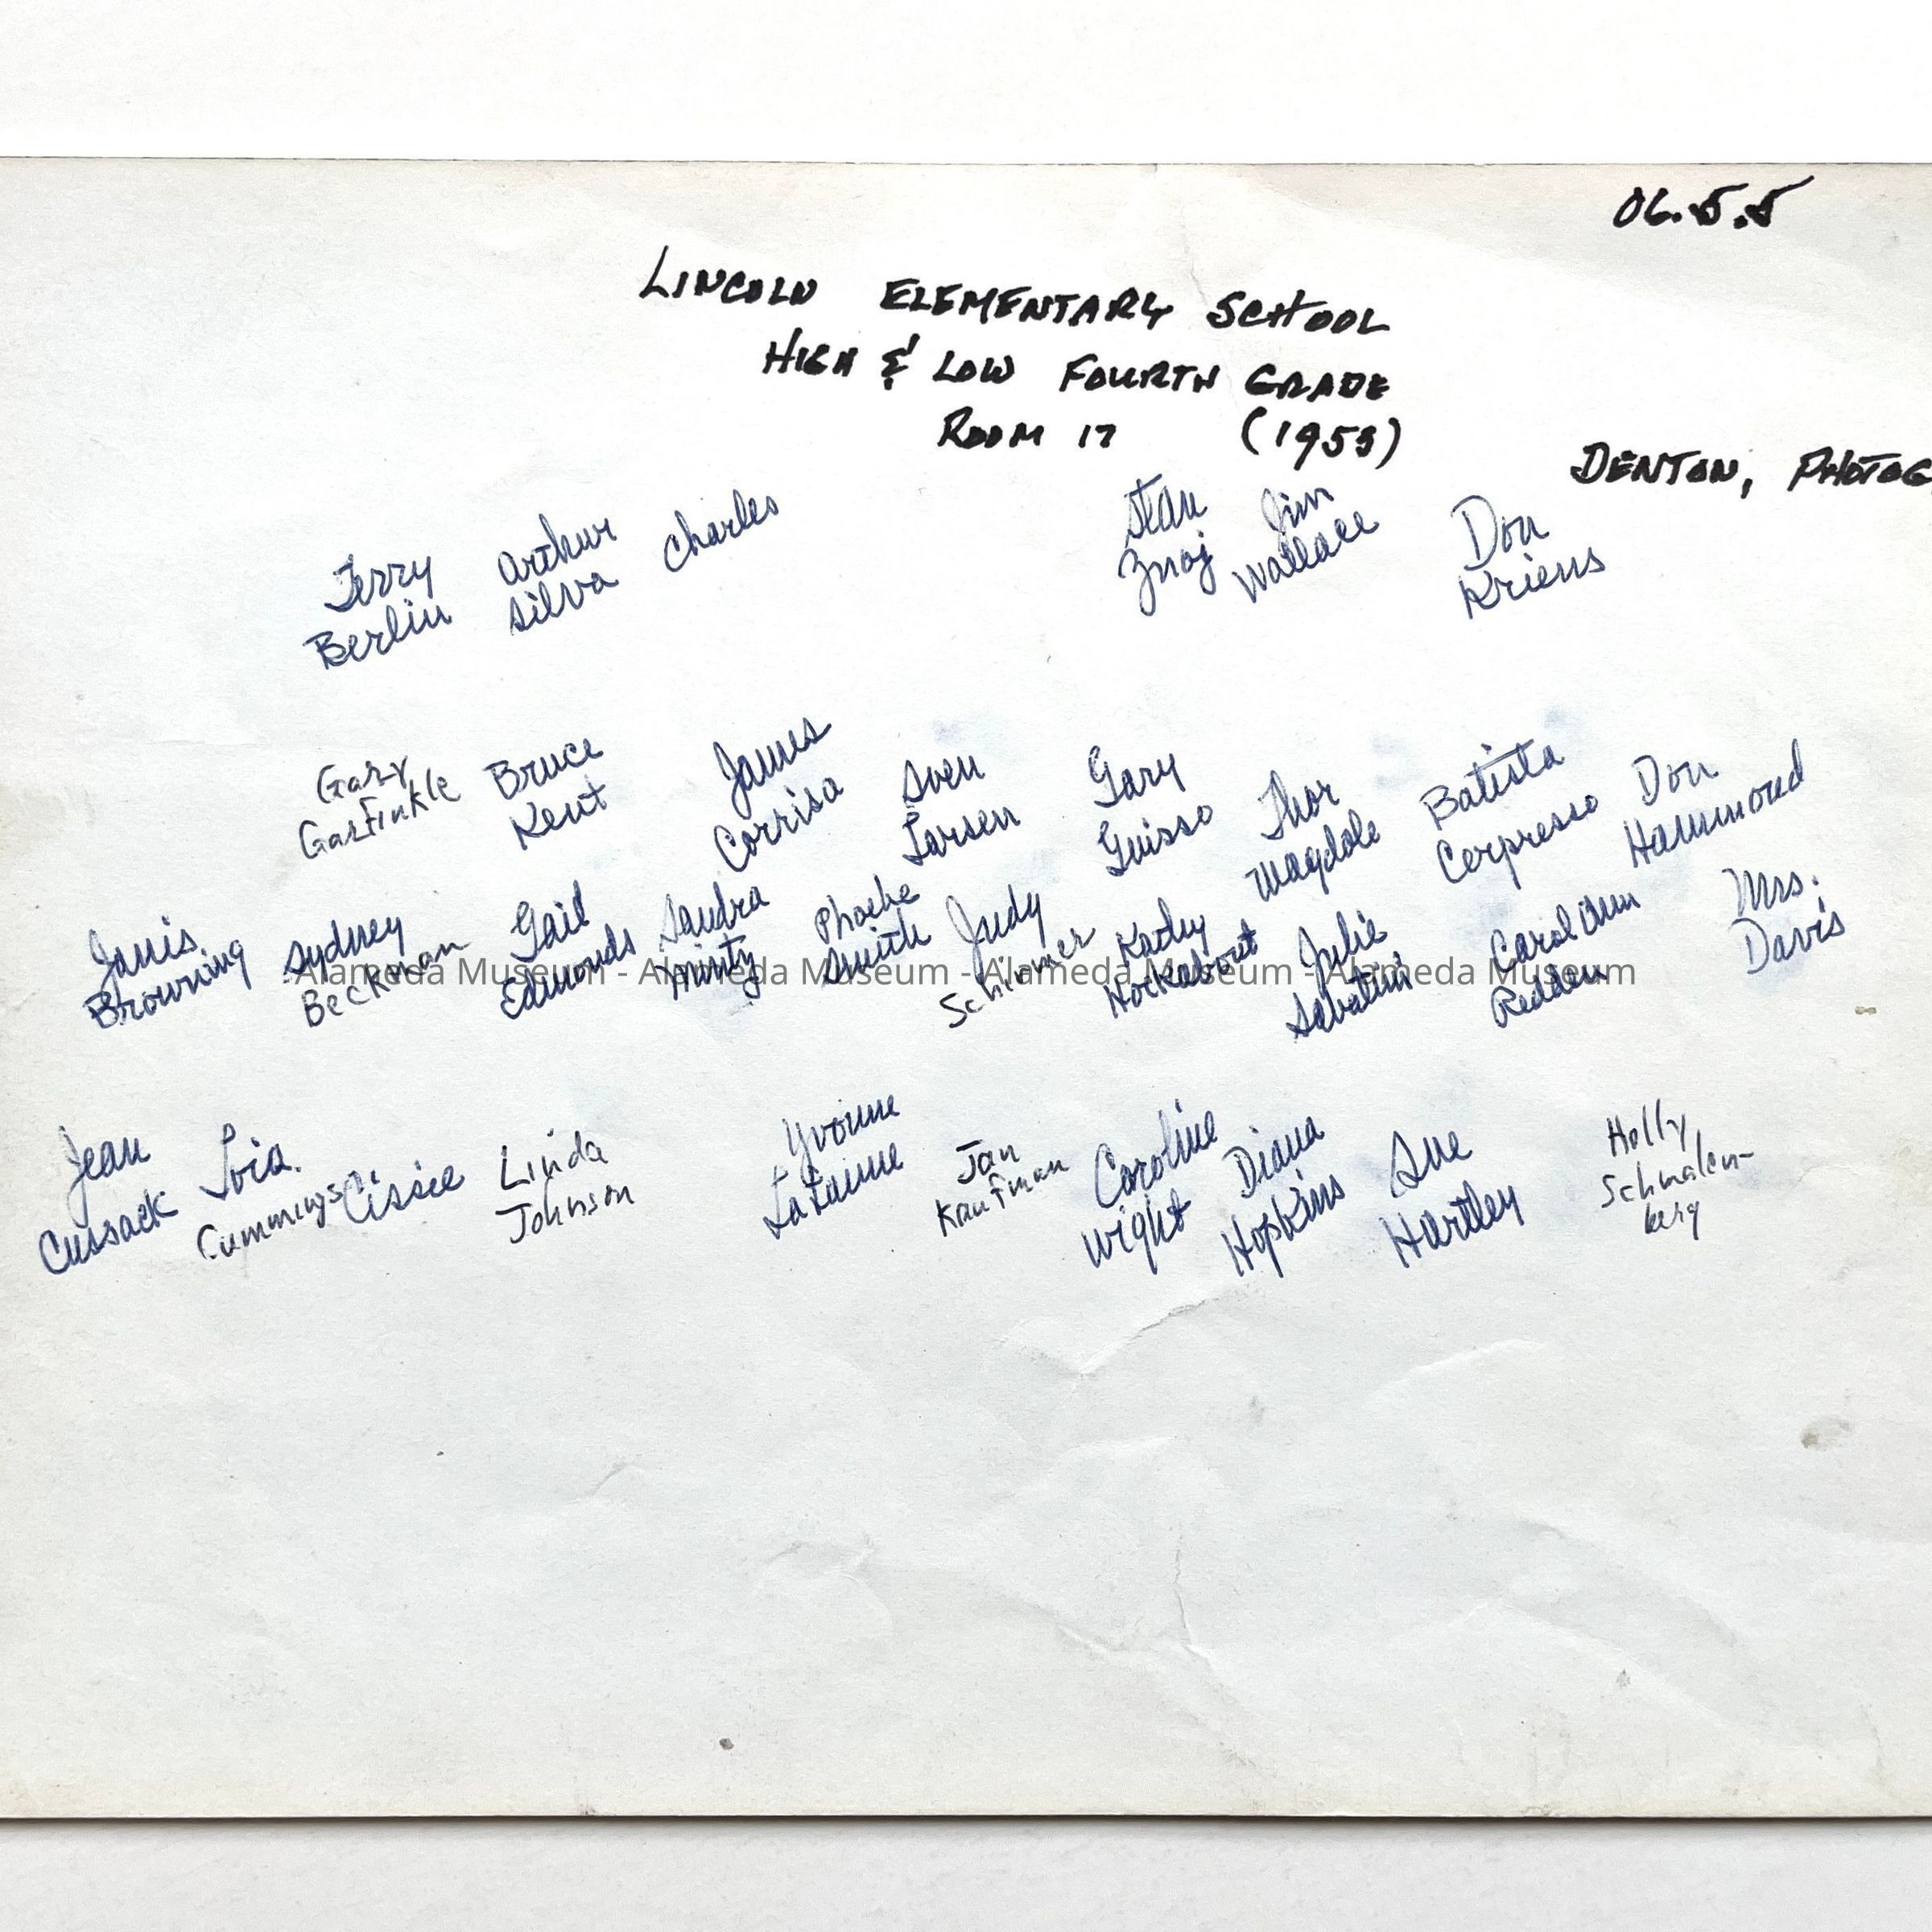 06.5.5
LINCOLN ELEMENTARY SCHOOL
HIGH & LOW FOURTH GRADE
ROOM 17 (1953)
DENTON, PHOTOG
Terry Berlin
Arthur Silva
Charles
Stan Znoj
Jim Wallace
Don Kriens
Gary Garfinkle
Bruce Kent
James Corrisa
Sven Larsen
Gary Guisso
Thor Magdole
Batista Cerpresso
Don Hammond
Janis Browning
Sydney Beckman
Gail Edmonds
Sandra
Phoebe Smith
Judy Schirmer
Kathy Hockabout
Julie Sabatini
Carol Ann Redden
Mrs. Davis
Alameda Museum - Alameda Museum - Alameda Museum - Alameda Museum
Jean Cussack
Lois Cummings
Cissie
Linda Johnson
Yvonne LaLaune
Jan Kaufman
Caroline Wight
Diana Hopkins
Sue Hartley
Holly Schmalen-
berg